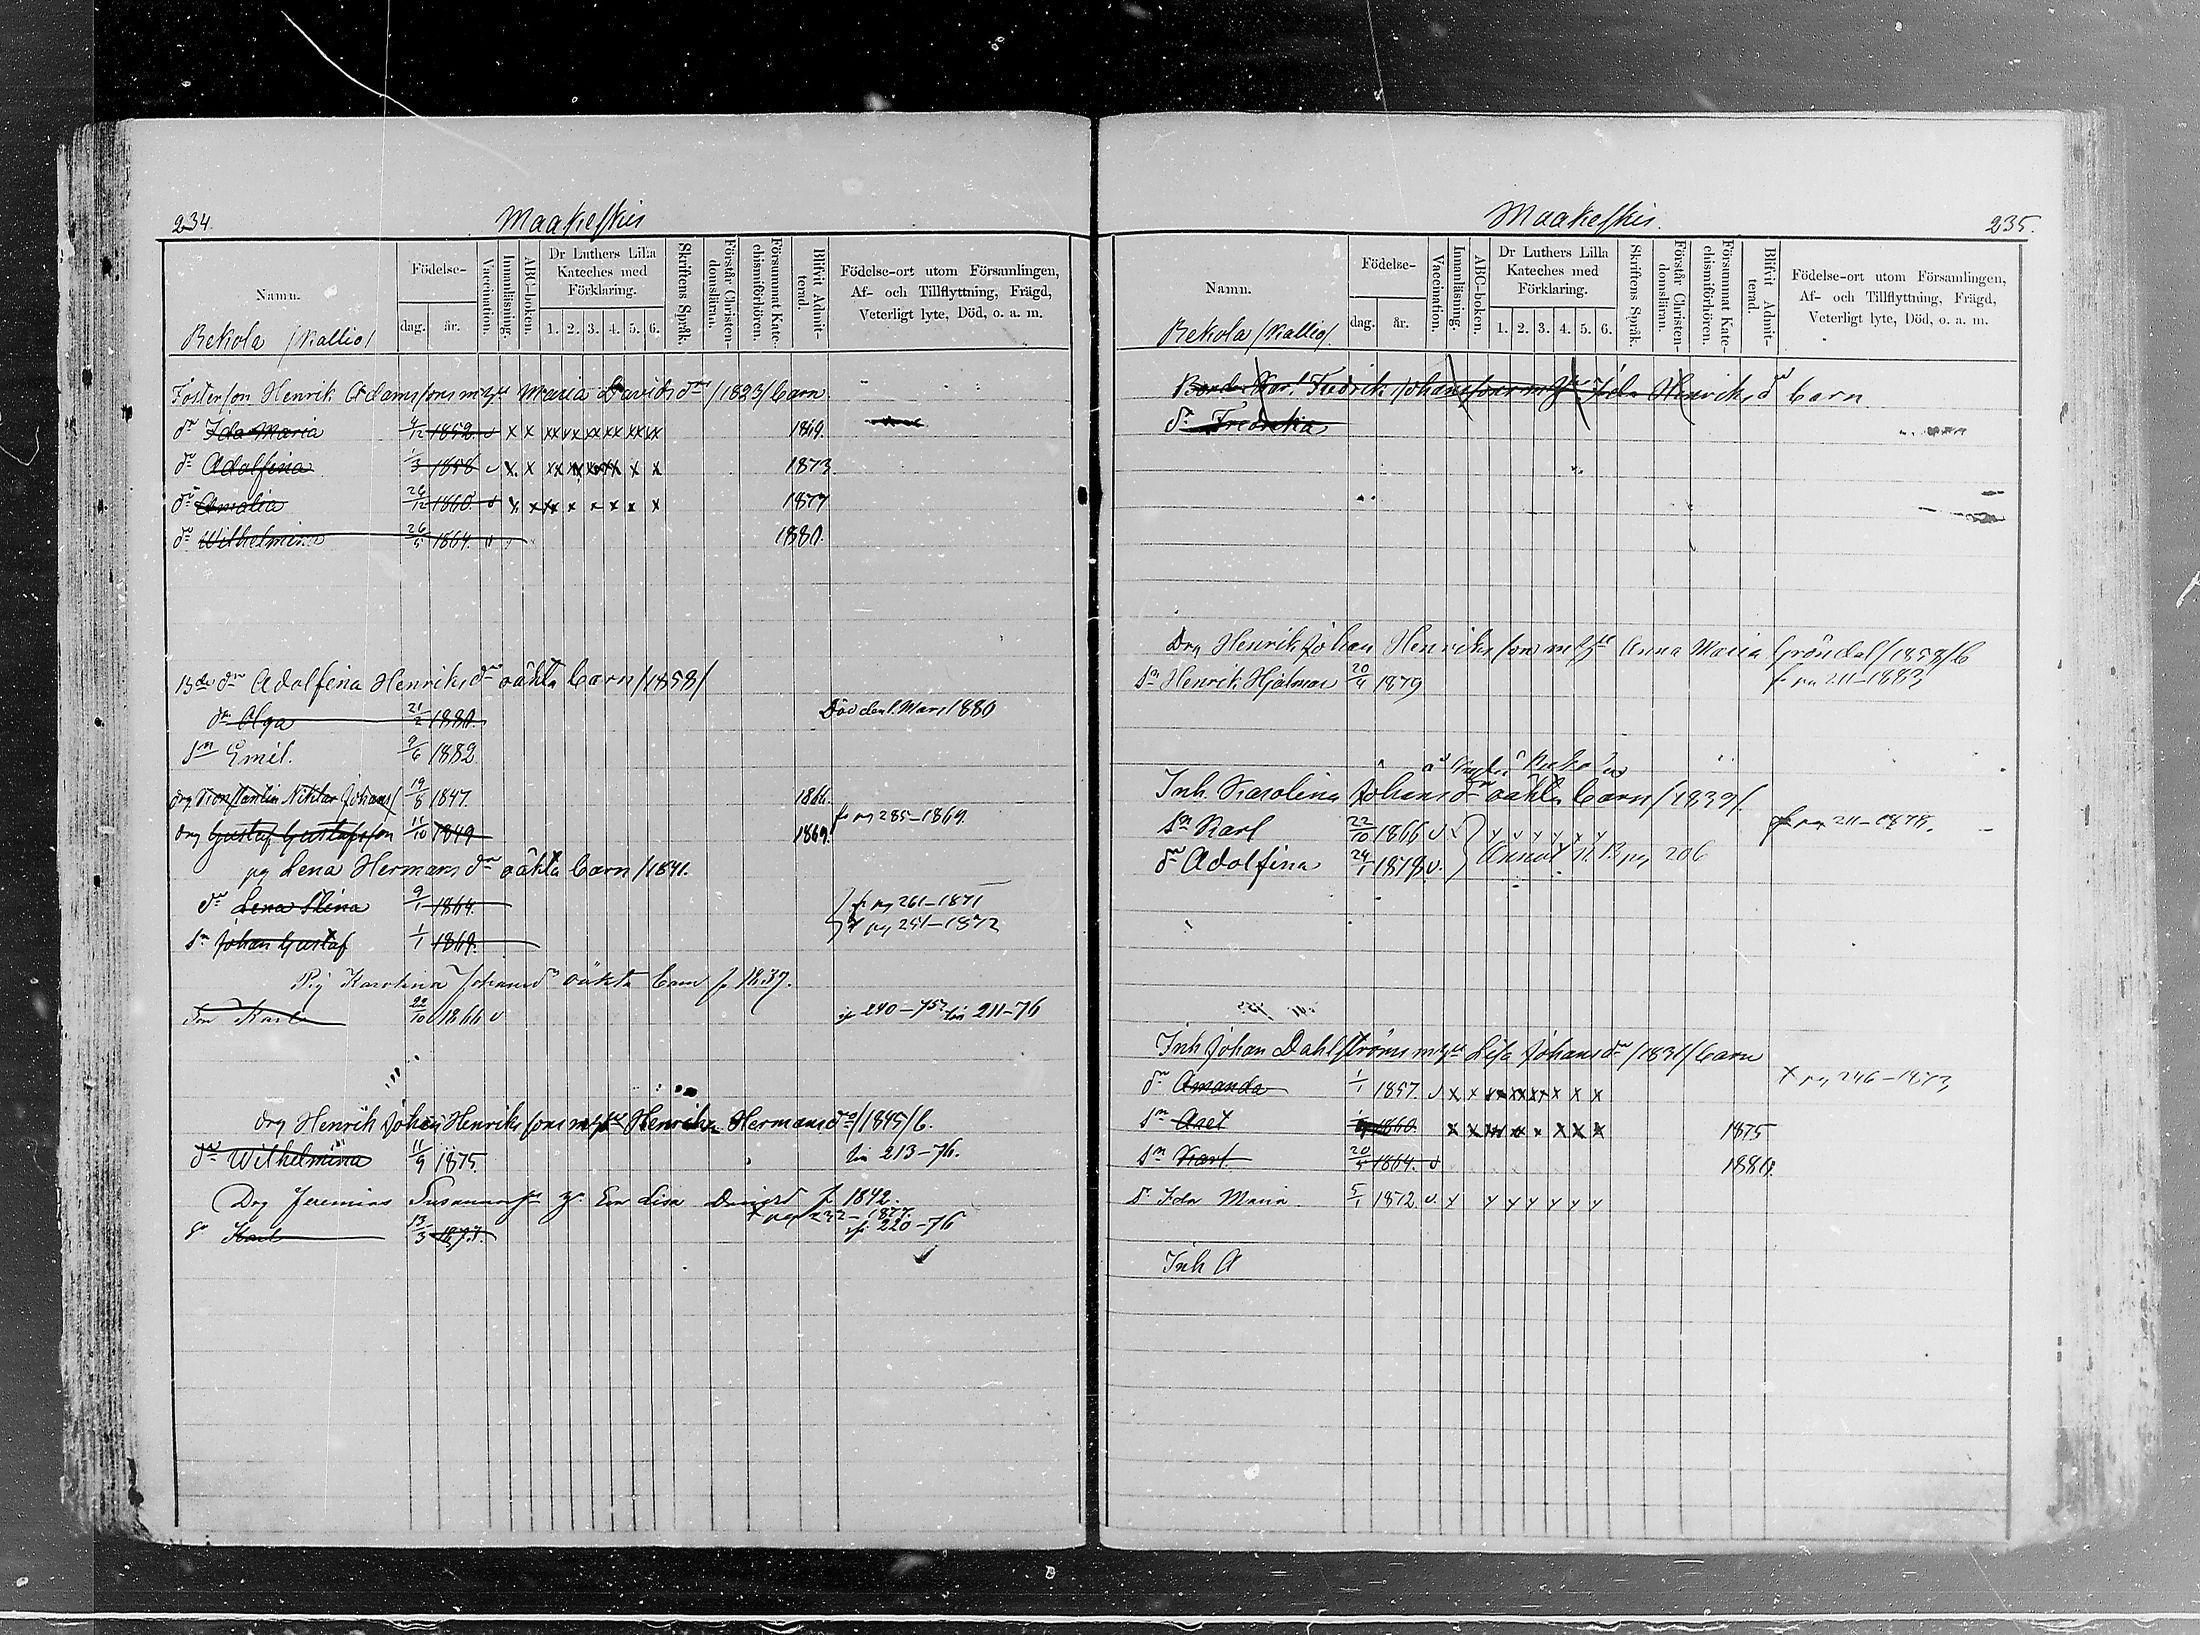 234.
Maakeskis
Namn.
Födelse-
dag.
år.
Vaccination.
Innanläsning.
ABC-boken.
Dr Luthers Lilla
Kateches med
Förklaring.
1. 2. 3. 4. 5. 6.
Skriftens Språk.
Förstår Christen-
domsläran.
Försummat Kate-
chismiförhören.
Blifvit Admit-
terad.
Födelse-ort utom Församlingen,
Af- och Tillflyttning, Frägd,
Veterligt lyte, Död, o. a. m.
Rekola /Kallio/
Fosterson Henrik Adamssons m hu Maria Davids dr /1823/ barn
dr Ida Maria 4/12 1852 v x x xx vx xx xx xx xx 1869.
dr Adolfina 1/3 1858 v x x xx xx xx xx x x 1873
dr Amalia 24/12 1860. v x x xx x x x x x 1877
dr Wilhelmina 26/5 1864. v v 1880.
Bde dr Adolfina Henriks dr oäkta barn /1858/
dr Olga 21/2 1880. Död den 1. Mars 1880
sn Emil. 9/6 1882
drg Konstantin Niktar Johans 19/8 1847. 1866.
drg Gustaf Gustafsson 11/10 1849 1869. fr pg 285-1869.
pg Lena Hermans dr oäkta barn /1841.
dr Lena Stina 9/1 1864. fr pg 261-1871
sn Johan Gustaf 1/1 1869. t pg 251-1872
Pig Karolina Johansd oäkta barn f 1837.
Son Karl 22/10 1866 v 240-75 till 211-76
drg Henrik Johan Henrikssons m hu Henrika Hermans dr /1845/ b.
dr Wilhelmina 11/9 1875. till 213-76.
Drg Jeremias h. Eva Lisa Davidsd f 1842.
t pg 232-1877
Karl 13/3 187 220-76
Maakeskis.
235.
Namn.
Födelse-
dag.
år.
Vaccination.
Innanläsning.
ABC-boken.
Dr Luthers Lilla
Kateches med
Förklaring.
1. 2. 3. 4. 5. 6.
Skriftens Språk.
Förstår Christen-
domsläran.
Försummat Kate-
chismiförhören.
Blifvit Admit-
terad.
Födelse-ort utom Församlingen,
Af- och Tillflyttning, Frägd,
Veterligt lyte, Död, o. a. m.
Rekola /Kallio/.
Bonden Karl Fredrik Johanssons m hu Ida Henriks dr barn
dr Fredrika
Drg Henrik Johan Henrikssons m hu Anna Maria Gröndal /1858/ b
sn Henrik Hjalmar 20/4 1879 fr pg 211-1883
Inh. Karolina Johans dr oäkta barn /1839/.
sn Karl 22/10 1866 v v y v v y x y fr pg 211-1878.
dr Adolfina 24/1 1878 v. Annot. N. B. pg 206
Inh Johan Dahlströms m hu Lisa Johans dr /1831/ barn
dr Amanda 1/1 1857. v x x xx xx xx x x x t pg 246-1873
sn Axel 1860 x x xx x x x x x 1875
sn Karl 20/5 1864. v 1880.
dr Ida Maria. 5/1 1872 v. y y y y y y y
Inh A